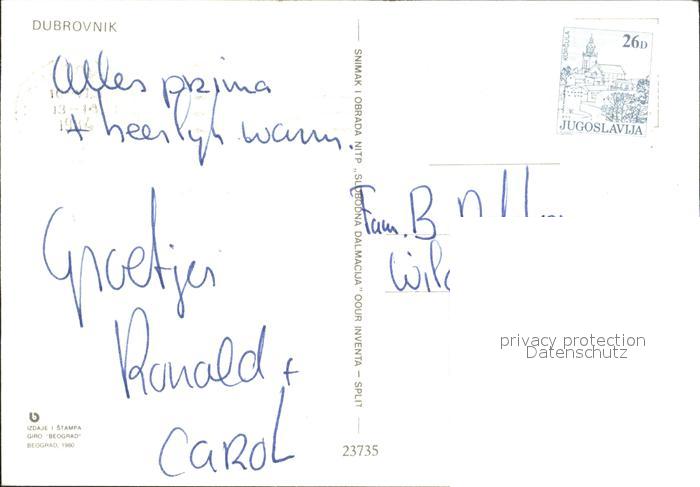 DUBROVNIK
Alles prima
+ heerlijk warm.
Groetjes
Ronald +
CAROL
IZDAJE I ŠTAMPA
GIRO "BEOGRAD"
BEOGRAD, 1980
SNIMAK I OBRADA NITP „SLOBODNA DALMACIJA" OOUR INVENTA – SPLIT
23735
KORČULA
26D
JUGOSLAVIJA
Fam. B
privacy protection
Datenschutz